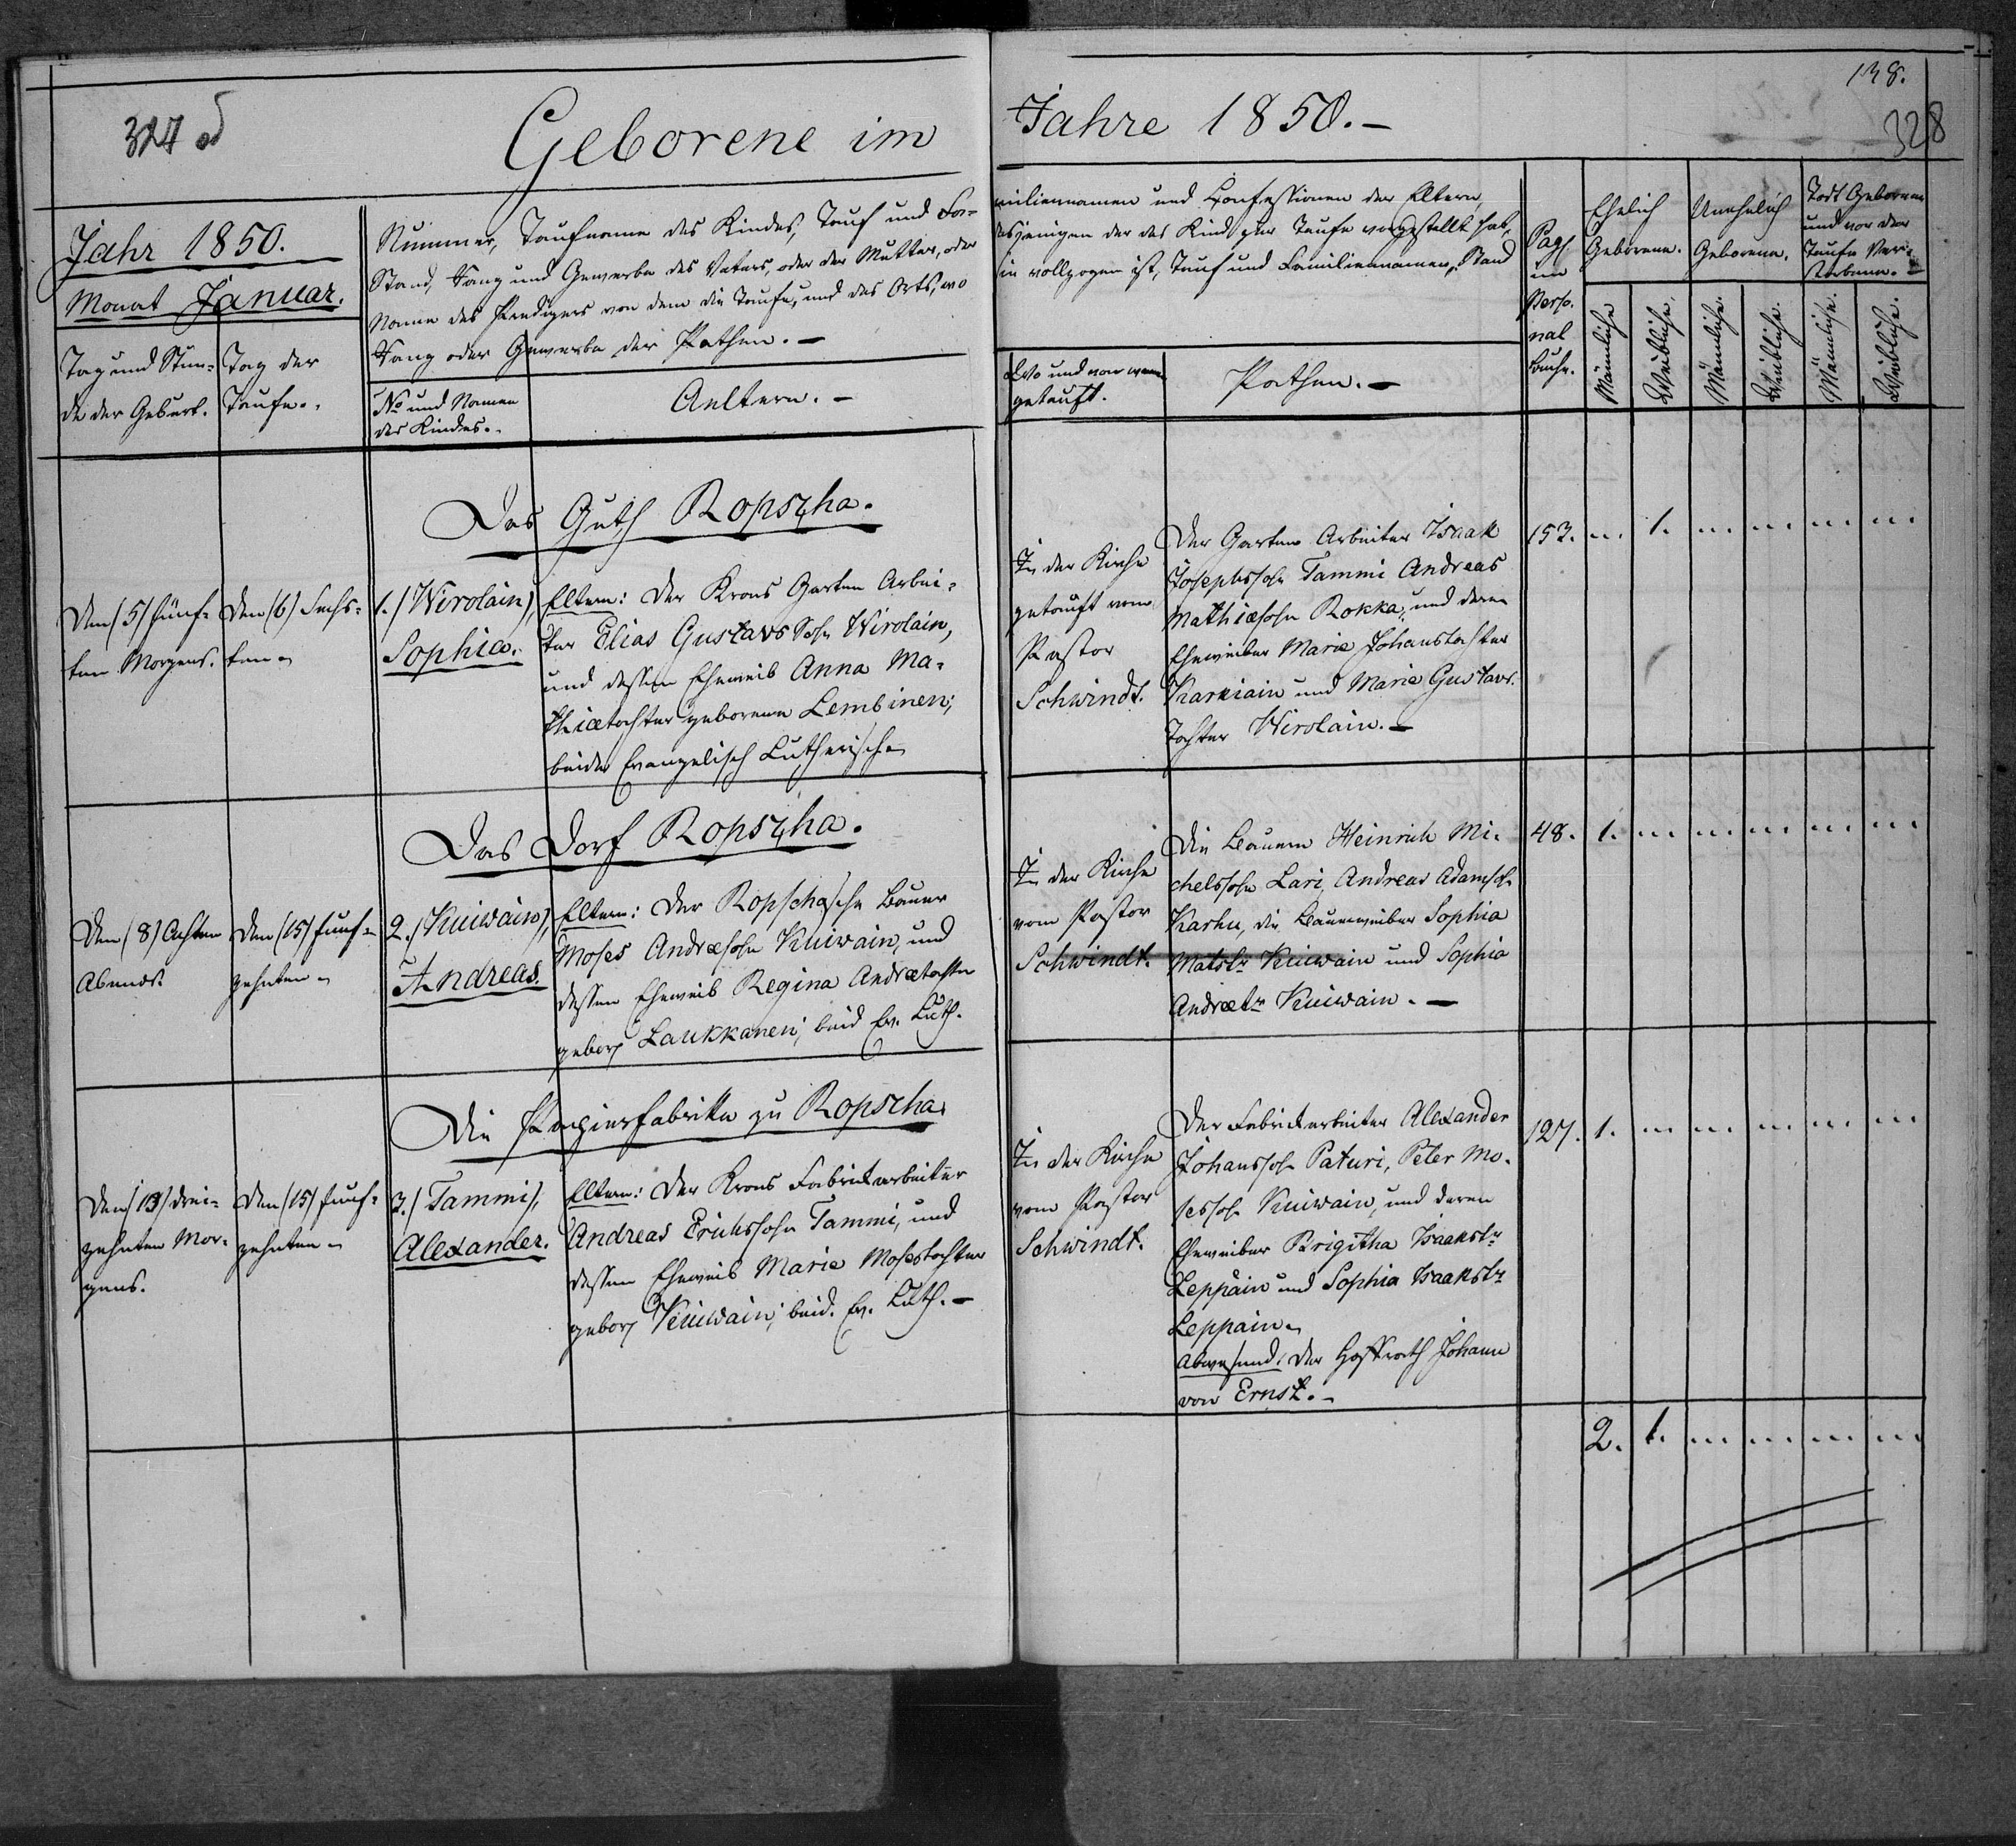 138.
328
Geborene im Jahre 1850.–
Jahr 1850.
Monat Januar.
Tag und Stun-
de der Geburt.
Tag der
Taufe.
Nummer, Taufname des Kindes, Tauf und Fa-
Stand, Rang und Gewerbe des Vaters, oder der Mutter, oder
Name des Predigers von dem die Taufe, und des Orts, wo
Rang oder Gewerbe der Pathen. –
No und Namen
des Kindes.
Aeltern. –
miliennamen und Confessionen der Eltern,
desjenigen der das Kind zur Taufe vorgestellt hat,
sie vollzogen ist, Tauf und Familiennamen, Stand
Wo und von wem
getauft.
Pathen. –
Pag.
im
Perso-
nal
Buche.
Ehelich
Geborene.
Unehelich
Geborene.
Todt Geborene
und vor der
Taufe Ver-
storbene. –
Männliche
Weibliche.
Männliche.
Weibliche.
Männliche.
Weibliche.
Das Guth Ropscha.
Den (5) fünf-
ten Morgens.
Den (6) Sechs-
ten
1. (Wirolain),
Sophia.
Eltern: Der Krons Garten Arbei-
ter Elias Gustavs Sohn Wirolain,
und dessen Eheweib Anna Ma-
thiætochter geborene Lembinen;
beide Evangelisch Lutherische
In der Kirche
getauft vom
Pastor
Schwindt.
Der Garten Arbeiter Isaak
Josephssohn Tammi Andreas
Mathiæsohn Rokka, und deren
Eheweiber Maria Johanstochter
Karkiain und Maria Gustavs-
tochter Wirolain. –
153. ... 1. ... ... ... ...
Das Dorf Ropscha.
Den (8) Achten
Abends.
Den (15) funf-
zehnten
2. (Kuiwain),
Andreas.
Eltern: Der Ropschasche Bauer
Moses Andræsohn Kuiwain, und
dessen Eheweib Regina Andrætochter
gebor. Laukkanen; beid. Ev. Luth.
In der Kirche
vom Pastor
Schwindt.
Die Bauern Heinrich Mi-
chelssohn Lari, Andreas Adamsoh.
Karhu, die Bauerweiber Sophia
Matstr Kuiwain und Sophia
Andrætr Kuiwain. –
48. 1. ... ... ... ... ...
Die Papierfabrike zu Ropscha
Den (13) drei-
zehnten Mor-
gens.
Den (15) funf-
zehnten
3. (Tammi),
Alexander.
Eltern: Der Krons Fabrikarbeiter
Andreas Erichssohn Tammi, und
dessen Eheweib Maria Mosestochter
gebor. Kuiwain; beid. Ev. Luth. –
In der Kirche
vom Pastor
Schwindt.
Der Fabrikarbeiter Alexander
Johanssoh. Paturi, Peter Mo-
sessoh. Kuiwain, und deren
Eheweiber Brigitha Isaakstr
Leppäin und Sophia Isaakstr
Leppäin
Abwesend: Der Hoffrath Johann
von Ernst. –
127. 1. ... ... ... ... ...
2. 1. ... ... ... ...